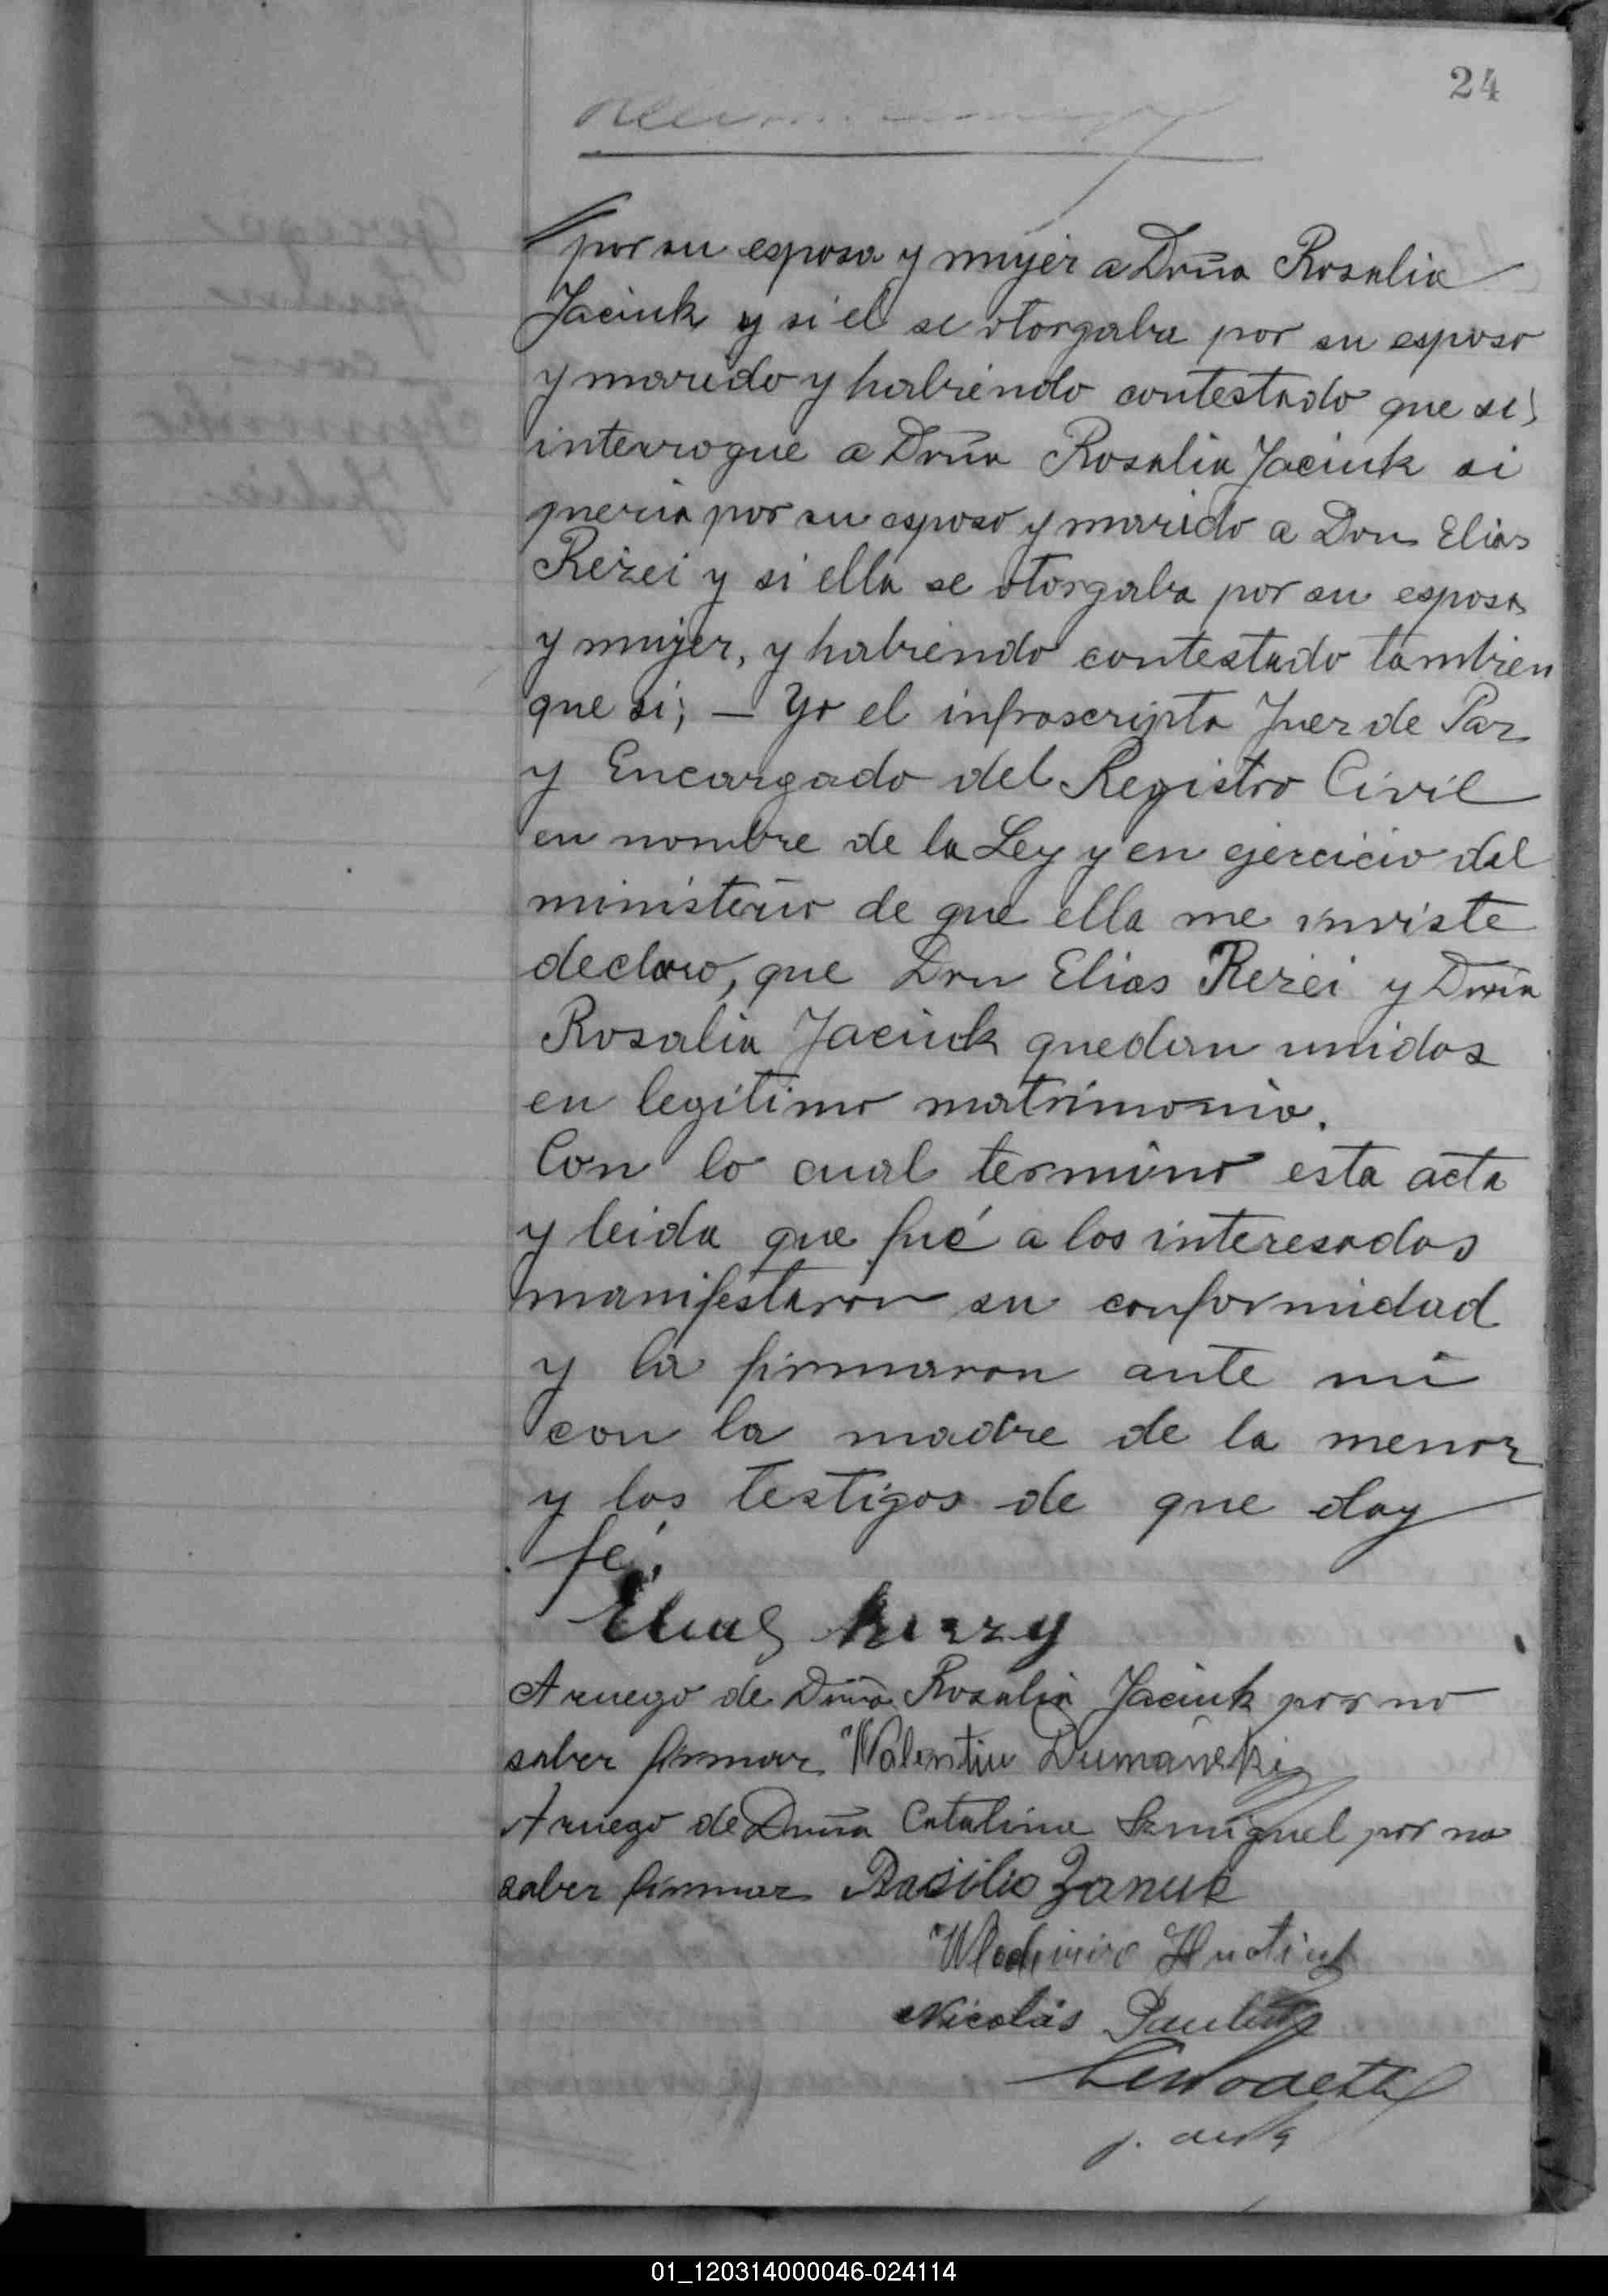 24
por su esposa y mujer a Doña Rosalia
Jaciuk y si el se otorgaba por su esposo
y marido y habiendo contestado que si,
interrogue a Doña Rosalia Jaciuk si
queria por su esposo y marido a Don Elias
Rezei y si ella se otorgaba por su esposa
y mujer, y habiendo contestado tambien
que si; — Yo el infrascripto Juez de Paz
y Encargado del Registro Civil
en nombre de la Ley y en ejercicio del
ministerio de que ella me inviste
declaro, que Don Elias Rezei y Doña
Rosalia Jaciuk quedan unidos
en legitimo matrimonio.
Con lo cual termino esta acta
y leida que fué a los interesados
manifestaron su conformidad
y la firmaron ante mi
con la madre de la menor
y los testigos de que doy
fé.
Elias
A ruego de Doña Rosalia Jaciuk por no
saber firmar Walentin Dumański
A ruego de Doña Catalina Szmiguel por no
saber firmar Basilio Zanuk
Nicolás
01_120314000046-024114